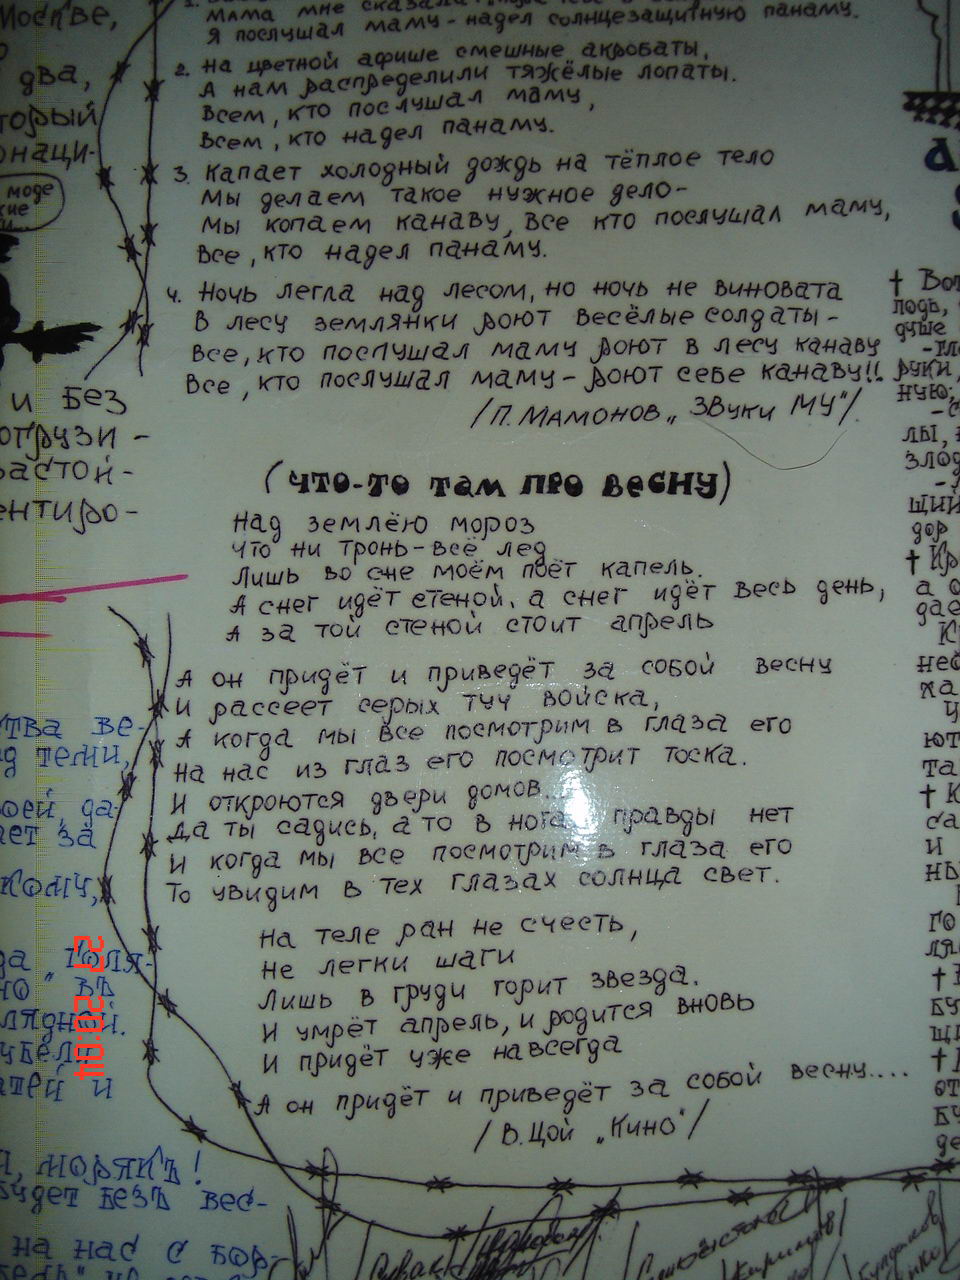 мама мне сказала
Я послушал маму - надел солнцезащитную панаму.
2. На цветной афише смешные акробаты,
А нам распределили тяжёлые лопаты.
Всем, кто послушал маму,
Всем, кто надел панаму.
3. Капает холодный дождь на тёплое тело
Мы делаем такое нужное дело-
Мы копаем канаву, все кто послушал маму,
Все, кто надел панаму.
4. Ночь легла над лесом, но ночь не виновата
В лесу землянки роют весёлые солдаты-
Все, кто послушал маму роют в лесу канаву
Все, кто послушал маму - роют себе канаву!!
/П. Мамонов „Звуки МУ"/
(ЧТО-ТО ТАМ ПРО ВЕСНУ)
Над землёю мороз
Что ни тронь - всё лед
Лишь во сне моём поёт капель.
А снег идёт стеной, а снег идёт весь день,
А за той стеной стоит апрель
А он придёт и приведёт за собой весну
И рассеет серых туч войска,
А когда мы все посмотрим в глаза его
На нас из глаз его посмотрит тоска.
И откроются двери домов...
Да ты садись, а то в ногах правды нет
И когда мы все посмотрим в глаза его
То увидим в тех глазах солнца свет.
На теле ран не счесть,
Не легки шаги
Лишь в груди горит звезда.
И умрёт апрель, и родится вновь
И придёт уже навсегда
А он придёт и приведёт за собой весну....
/В. Цой „Кино"/
Москве,
два,
моде
и без
тва ве-
д теми,
ает за
а голя-
но" въ
и
, морякъ!
будет безъ вес-
на нас с бор-
† Вот
душе
руки,
ную;
злод
щий
†
а
и
†
†
27 20:04